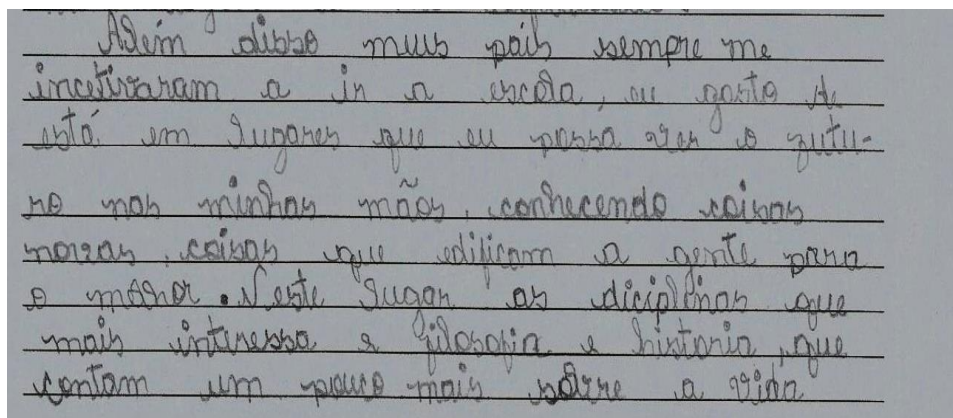 Além disso meus pais sempre me
incetivaram a ir a escola, eu gosto de
está em lugares que eu possa ver o futu-
ro nas minhas mãos, conhecendo coisas
novas, coisas que edificam a gente para
o melhor. Neste lugar as diciplinas que
mais interessa e filosofia e historia, que
contam um pouco mais sobre a vida